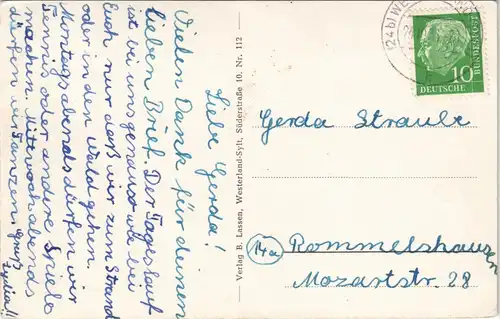 Liebe Gerda!
Vielen Dank für deinen
lieben Brief. Der Tageslauf
ist bei uns genauso wie bei
Euch nur daß wir zum Strand
oder in den Wald gehen.
Montagsabends dürfen wir
Tennis oder andere Spiele
machen. Mittwochabends
dürfen wir Tanzen. Gruß
Lydia!!
Verlag B. Lassen, Westerland-Sylt, Süderstraße 10. Nr. 112
(24b) WE
10
DEUTSCHE
BUNDESPOST
Gerda Straube
14a Rommelshausen
Mozartstr. 28